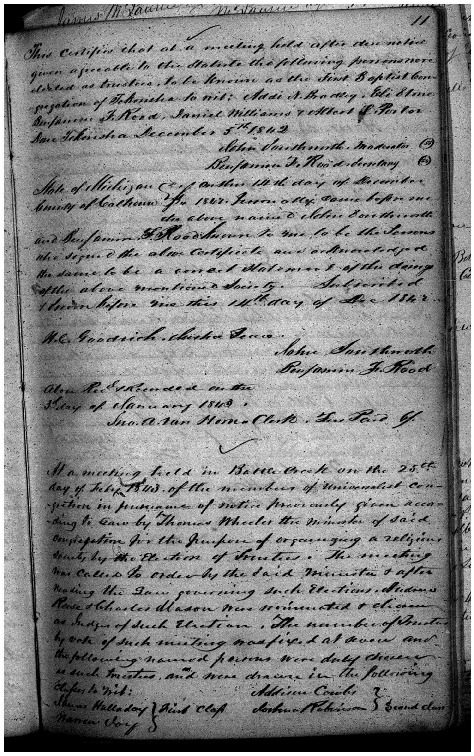 11
This Certifies that at a meeting held after due notice
given agreeable to the Statute the following persons were
elected as trustees, to be known as the First Baptist Con
gregation of Tekonsha to wit: Addi N. Bradley,
Benjamin F. Rood, Daniel Williams & Albert Porter
Date Tekonsha December 5th 1842
John Southworth Moderator
Benjamin F. Rood Secretary
State of Michigan On this 14th day of December
County of Calhoun 1842 Personally came before me
the above named John Southworth
and Benjamin F. Rood known to me to be the Persons
who signed the above Certificate and acknowledged
the same to be a correct Statement of the doings
of the above mentioned Society. Subscribed
& Sworn before me this 14th day of Dec 1842
H.C. Goodrich, Justice Peace
John Southworth
Benjamin F. Rood
Above Recd & Recorded on the
3d day of January 1843.
Jno. A. Van Horne Clerk. Fees Paid
At a meeting held in Battle Creek on the 25th
day of Feby 1843 of the members of Universalist con-
gregation in pursuance of notice previously given accor-
ding to Law by Thomas Wheeler the minister of said
congregation for the purpose of organizing a religious
Society by the Election of Trustees. The meeting
was called to order by the said minister & after
reading the Law governing such Elections
Rose & Charles Mason was nominated & chosen
as Judges of such Election. The number of Trustees
by vote of such meeting was fixed at seven and
the following named persons were duly chosen
as such trustees, and were drawn in the following
Classes to wit: Addison Combs
James Halladay First Class Joshua Robinson Second Class
Warren Joy